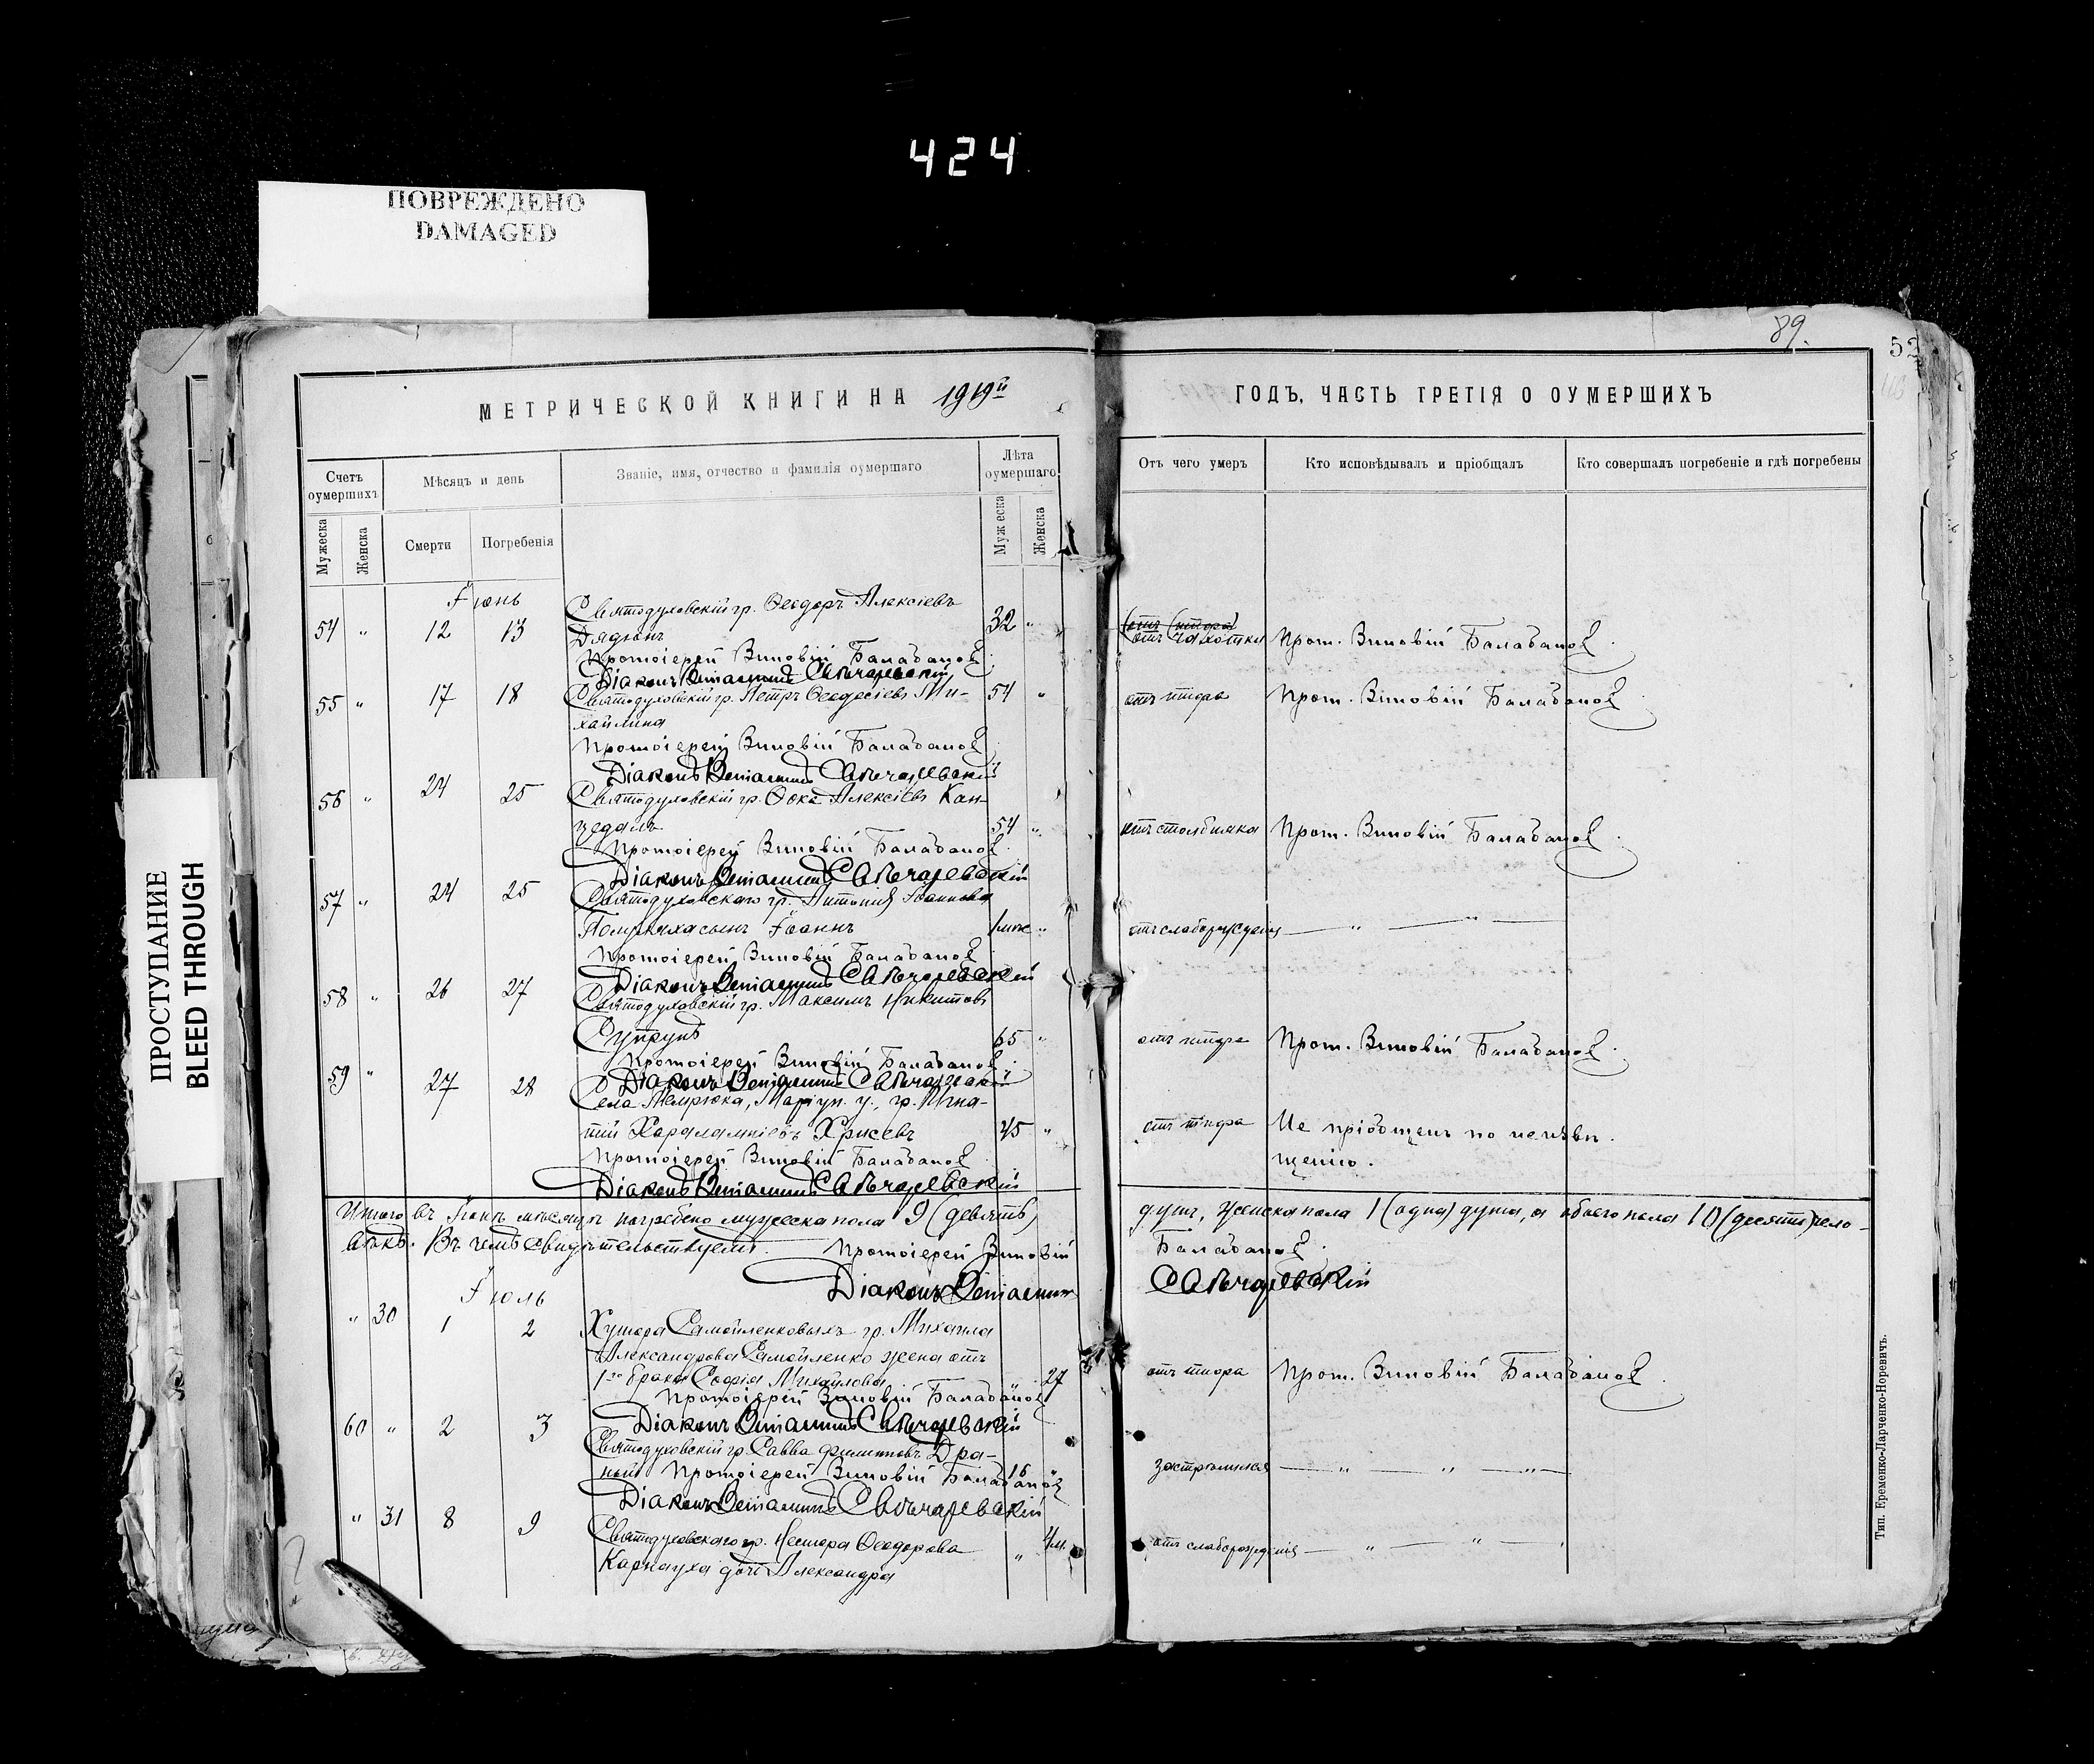 424
ПОВРЕЖДЕНО
DAMAGED
ПРОСТУПАНИЕ
BLEED THROUGH
89.
52
МЕТРИЧЕСКОЙ КНИГИ НА 1919й
ГОДЪ, ЧАСТЬ ТРЕТІЯ О ОУМЕРШИХЪ
Счетъ оумершихъ
Мѣсяцъ и день
Званіе, имя, отчество и фамилія оумершаго
Лѣта оумершаго
Отъ чего умеръ
Кто исповѣдывалъ и пріобщалъ
Кто совершалъ погребеніе и гдѣ погребены
Мужеска
Женска
Смерти
Погребенія
Мужеска
Женска
Іюнь
54 " 12 13 Святодуховскій гр. Ѳеодоръ Алексіевъ
Дядюнъ 32 " отъ чахотки Прот. Зиновій Балабановъ
Протоіерей Зиновій Балабановъ
Діаконъ Веніаминъ
55 " 17 18 Святодуховскій гр. Петръ Ѳеодосіевъ Ми- 54 " отъ тифа Прот. Зиновій Балабановъ
хайлина
Протоіерей Зиновій Балабановъ
Діаконъ Веніаминъ
56 " 24 25 Святодуховскій гр. Ѳока Алексіевъ Кан-
цедалъ 54 " отъ столбняка Прот. Зиновій Балабановъ
Протоіерей Зиновій Балабановъ
Діаконъ Веніаминъ
57 " 24 25 Святодуховскаго гр. Антонія Іоаннова
сынъ Іоаннъ 1 мес " отъ слаборожденія — " — " —
Протоіерей Зиновій Балабановъ
Діаконъ Веніаминъ
58 " 26 27 Святодуховскій гр. Максимъ Никитовъ
Супрунъ 65 " отъ тифа Прот. Зиновій Балабановъ
Протоіерей Зиновій Балабановъ
Діаконъ Веніаминъ
59 " 27 28 Села Темрюка, Маріуп. у., гр. Игна-
тій Харалампіевъ 45 " отъ тифа Не пріобщенъ по неизвѣ-
щенію.
Протоіерей Зиновій Балабановъ
Діаконъ Веніаминъ
Итого въ Іюнѣ мѣсяцѣ погребено мужеска пола 9 (девять) душъ, женска пола 1 (одна) душа, а обоего пола 10 (десять) чело-
вѣкъ. Въ чемъ свидѣтельствуемъ. Протоіерей Зиновій Балабановъ
Діаконъ Веніаминъ
Іюль
" 30 1 2 Хутора Самойленковыхъ гр. Михаила
Александрова Самойленко жена отъ
1го брака Софія Михайлова " 27 отъ тифа Прот. Зиновій Балабановъ
Протоіерей Зиновій Балабановъ
Діаконъ Веніаминъ
60 " 2 3 Святодуховскій гр. Савва Филиповъ Дра-
ный 16 " — " — " — " —
Протоіерей Зиновій Балабановъ
Діаконъ Веніаминъ
" 31 8 9 Святодуховскаго гр. Нестора Ѳеодорова
Карнауха дочь Александра " 4 м. отъ слаборожденія — " — " —
Тип. Еременко-Ларченко-Норевичъ.